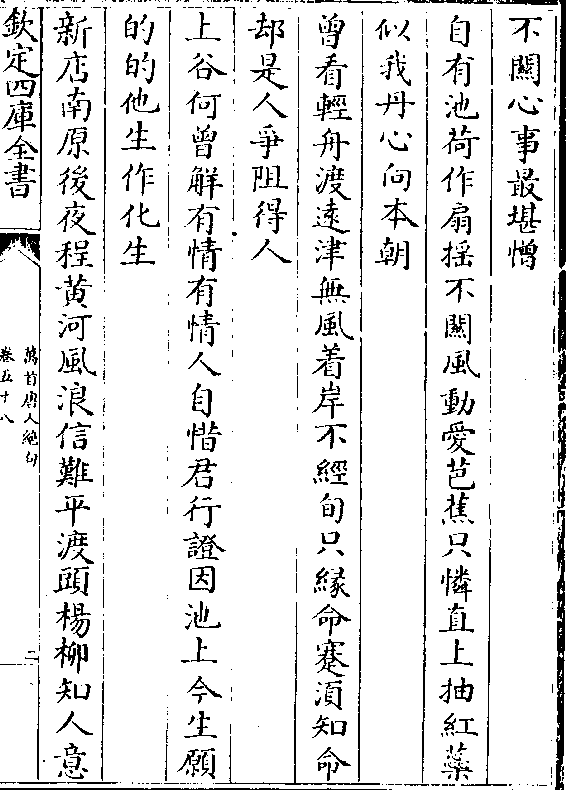 不關心事最堪憎
自有池荷作扇揺不關風動愛芭蕉只憐直上抽紅蘂
似我丹心向本朝
曾看輕舟渡遠津無風着岸不經旬只緣命蹇湏知命
却是人爭阻得人
上谷何曾解有情有情人自惜君行證因池上今生願
的的他生作化生
新店南原後夜程黄河風浪信難平渡頭楊柳知人意
欽定四庫全書
萬首唐人絶句
卷五十八
二